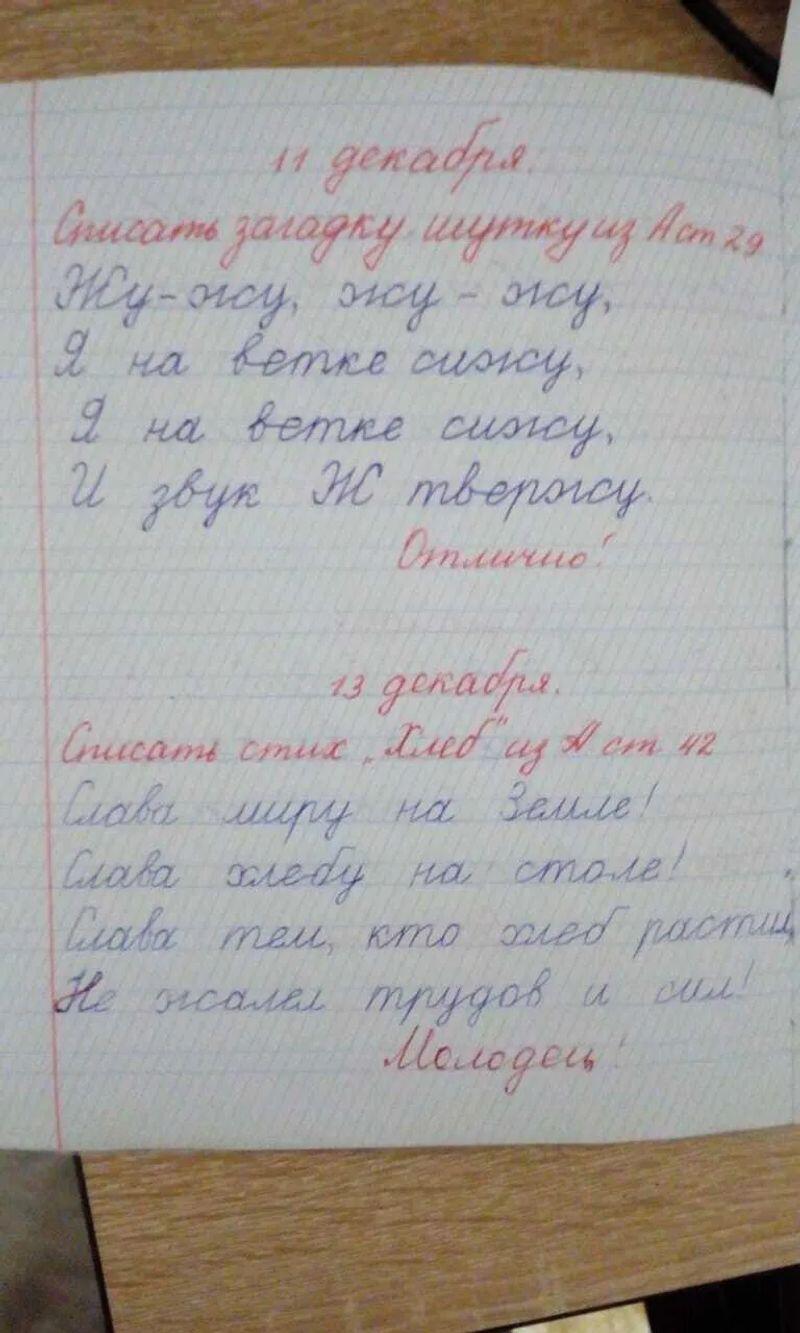 11 декабря.
Списать загадку шутку из А ст 29
Жу-жу, жу-жу,
Я на ветке сижу,
Я на ветке сижу,
И звук Ж твержу.
Отлично!
13 декабря.
Списать стих „Хлеб" из А ст 42
Слава миру на Земле!
Слава хлебу на столе!
Слава тем, кто хлеб растил,
Не жалел трудов и сил!
Молодец!